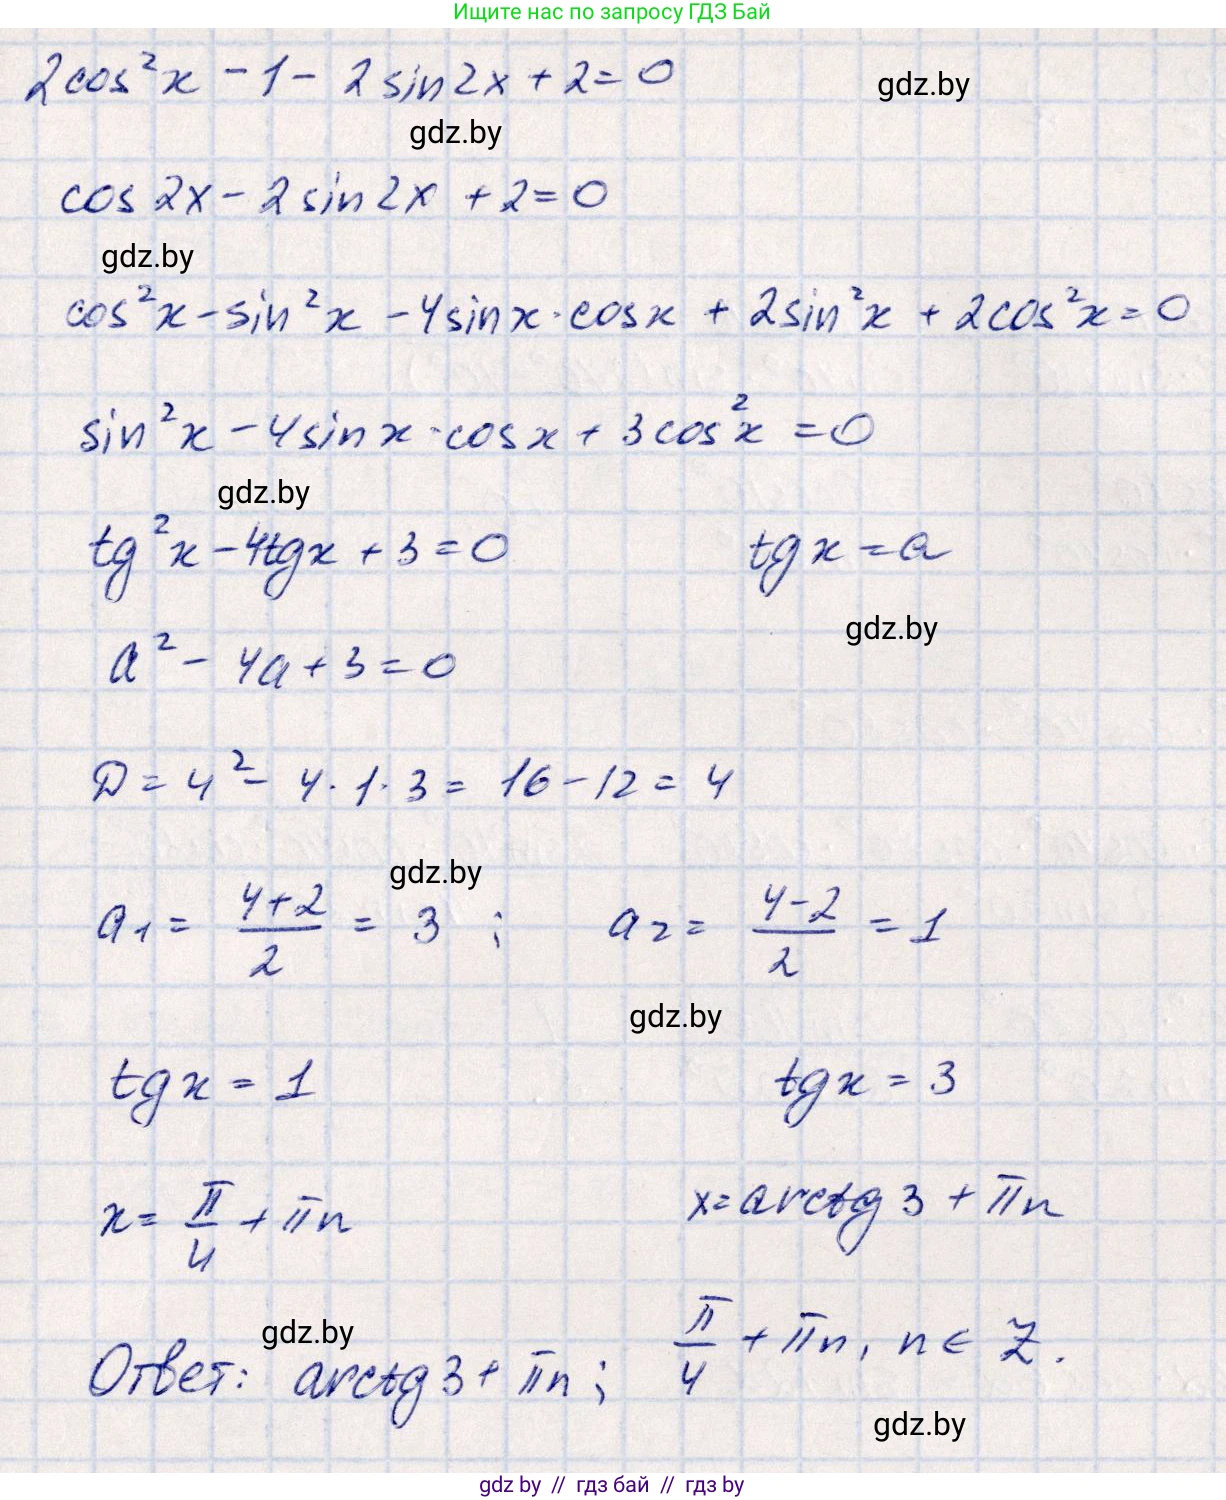 Ищите нас по запросу ГДЗ Бай
2cos²x - 1 - 2sin2x + 2 = 0
gdz.by
gdz.by
cos2x - 2sin2x + 2 = 0
gdz.by
cos²x - sin²x - 4sinx · cosx + 2sin²x + 2cos²x = 0
sin²x - 4sinx · cosx + 3cos²x = 0
gdz.by
tg²x - 4tgx + 3 = 0 tgx = a
gdz.by
a² - 4a + 3 = 0
D = 4² - 4 · 1 · 3 = 16 - 12 = 4
gdz.by
a₁ = (4+2)/2 = 3 ; a₂ = (4-2)/2 = 1
gdz.by
tgx = 1 tgx = 3
x = π/4 + πn x = arctg3 + πn
gdz.by
Ответ: arctg3 + πn ; π/4 + πn, n ∈ Z.
gdz.by
gdz by // гдз бай // гдз by